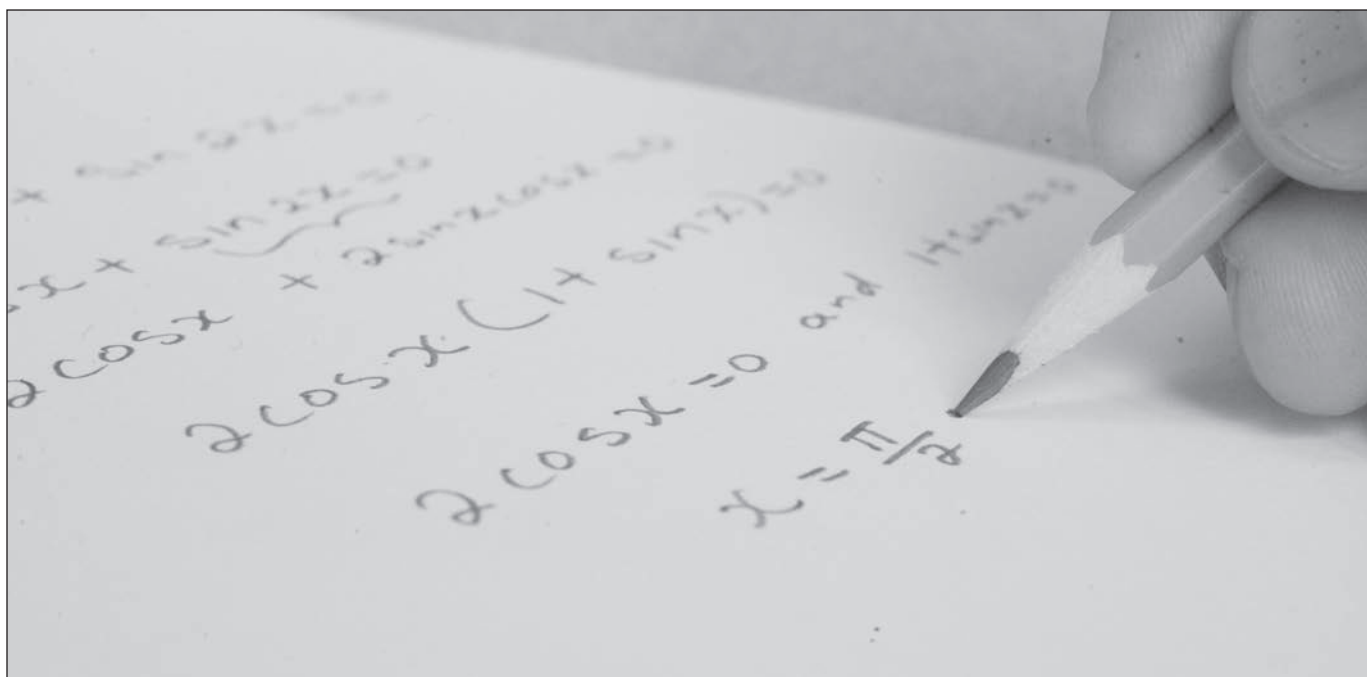 + sin 2x = 0
x + sin 2x = 0
2 cos x + 2 sin x cos x = 0
2 cos x (1 + sin x) = 0
2 cos x = 0 and 1 + sin x = 0
x = π/2